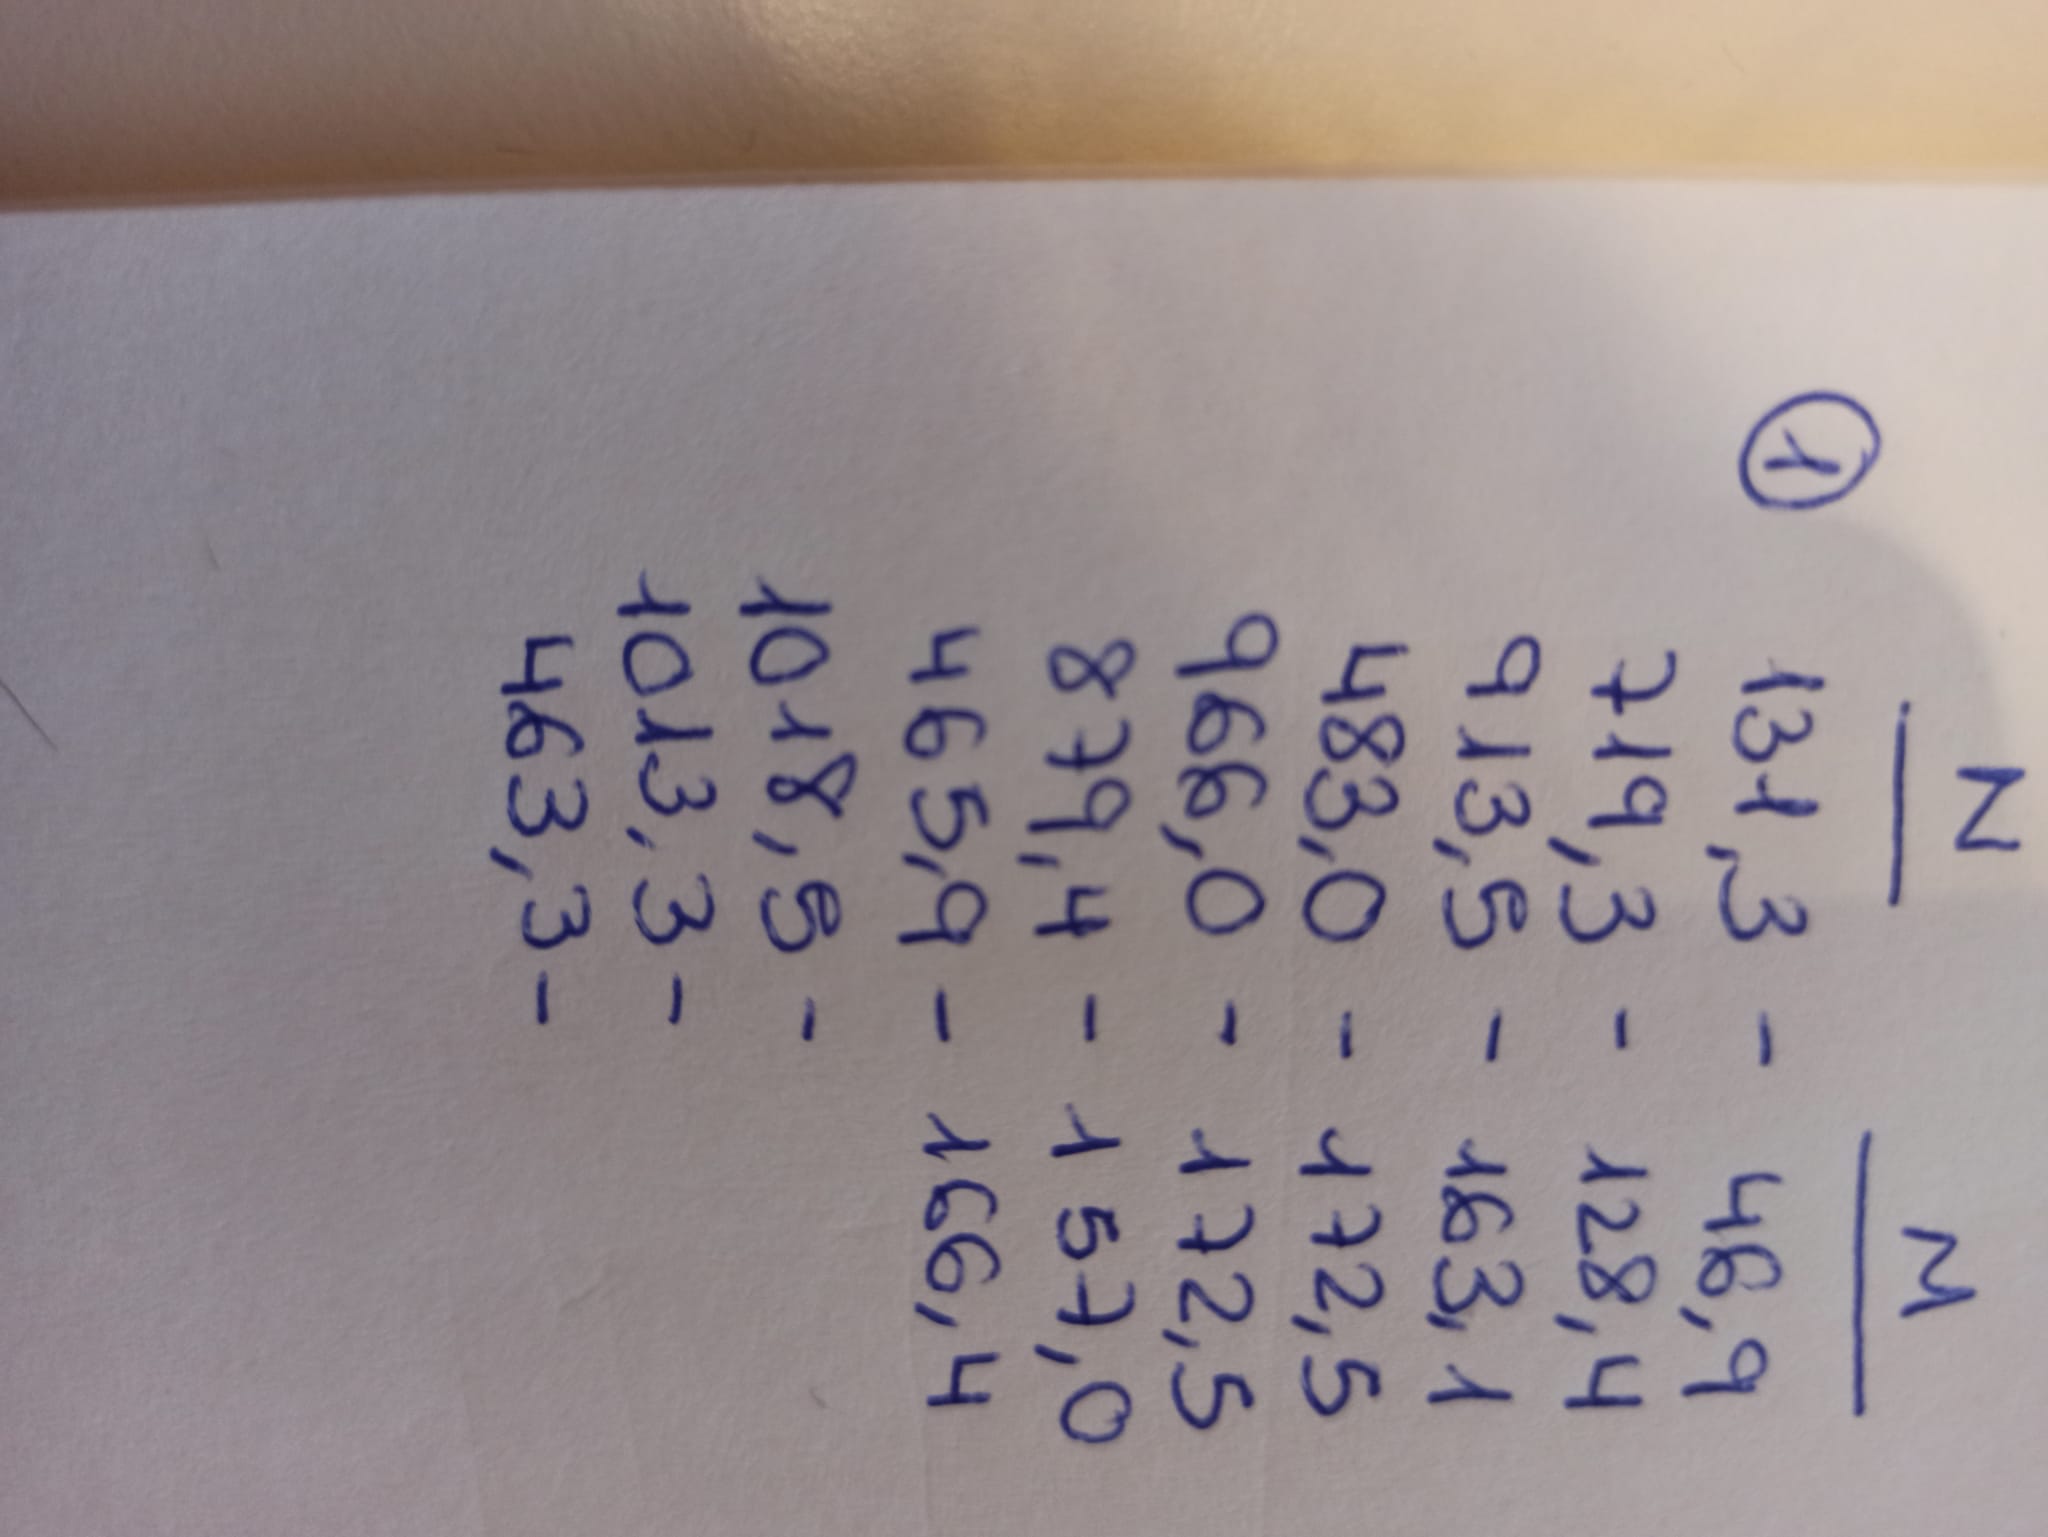 N M
① 131,3 - 48,9
719,3 - 128,4
913,5 - 163,1
483,0 - 172,5
966,0 - 172,5
879,4 - 157,0
465,9 - 166,4
1018,5 -
1013,3 -
463,3 -